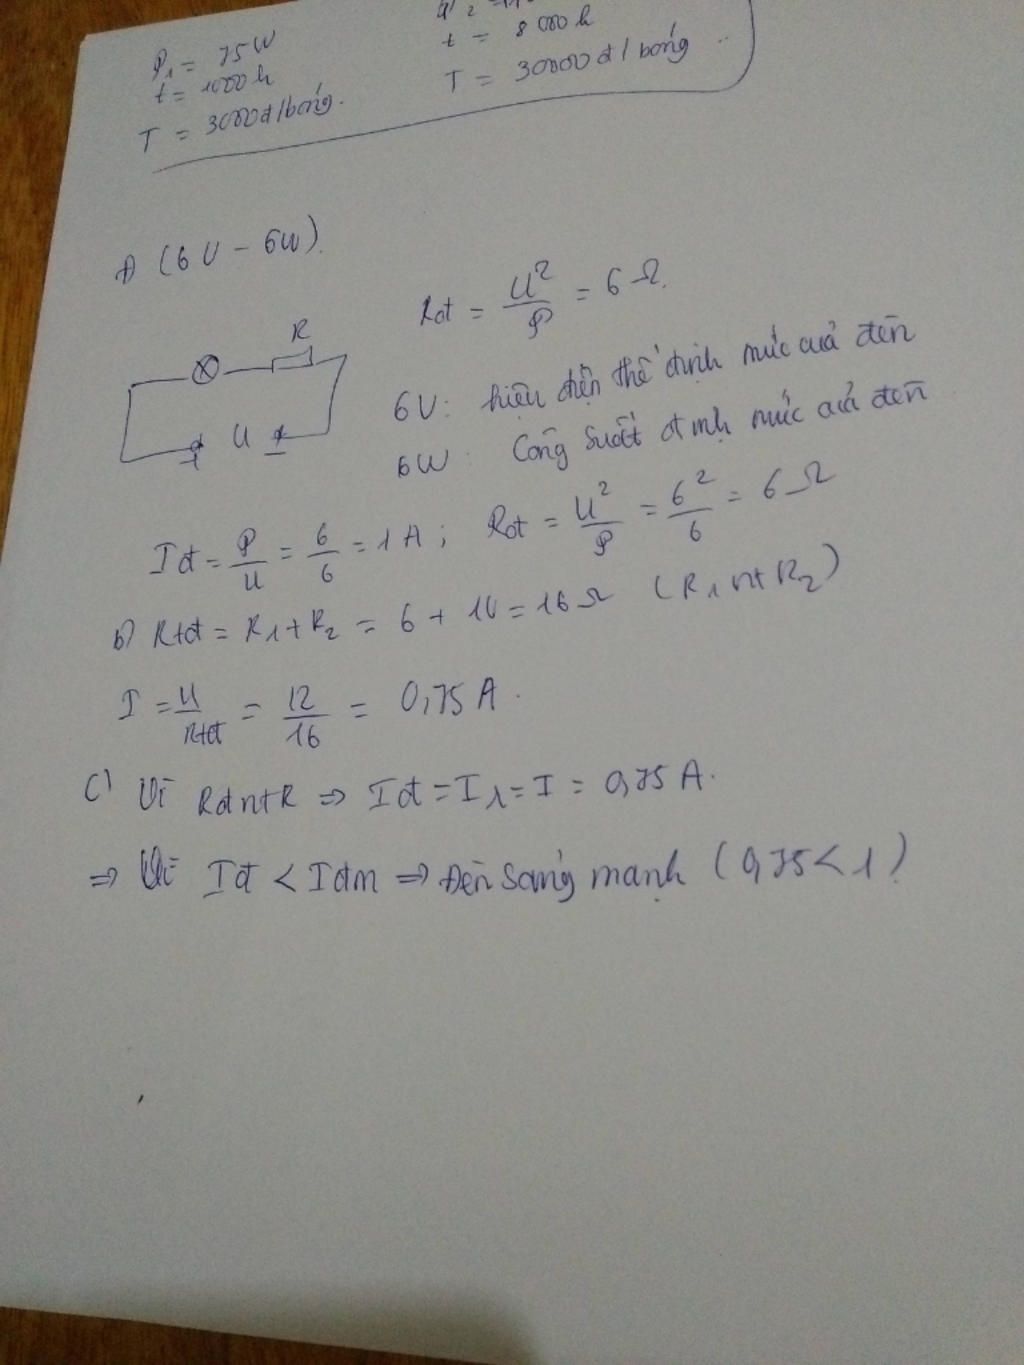 P₁ = 75W
t = 1000 h
T = 3000đ/bóng.
t = 8000 h
T = 30000đ/bóng
a) (6V - 6W).
Rđ = U²/P = 6Ω.
R
U
+ -
6V: hiệu điện thế định mức của đèn
6W: Công suất định mức của đèn
Iđ = P/U = 6/6 = 1A; Rđ = U²/P = 6²/6 = 6Ω
b) Rtđ = R₁ + R₂ = 6 + 10 = 16Ω (R₁ nt R₂)
I = U/Rtđ = 12/16 = 0,75A.
c) Vì Rđ nt R ⇒ Iđ = I₁ = I = 0,75A.
⇒ Vì Iđ < Iđm ⇒ Đèn sáng mạnh (0,75 < 1)